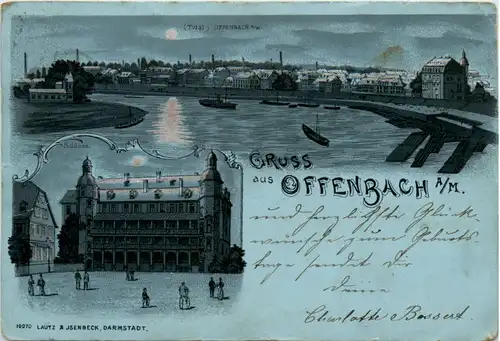 (Total) OFFENBACH a/M.
Schloss.
GRUSS
aus OFFENBACH A/M.
und herzlichste Glück-
wünsche zum Geburts
tage sendet dir
Deine
Charlotte Bossert.
19270 LAUTZ & JSENBECK, DARMSTADT.